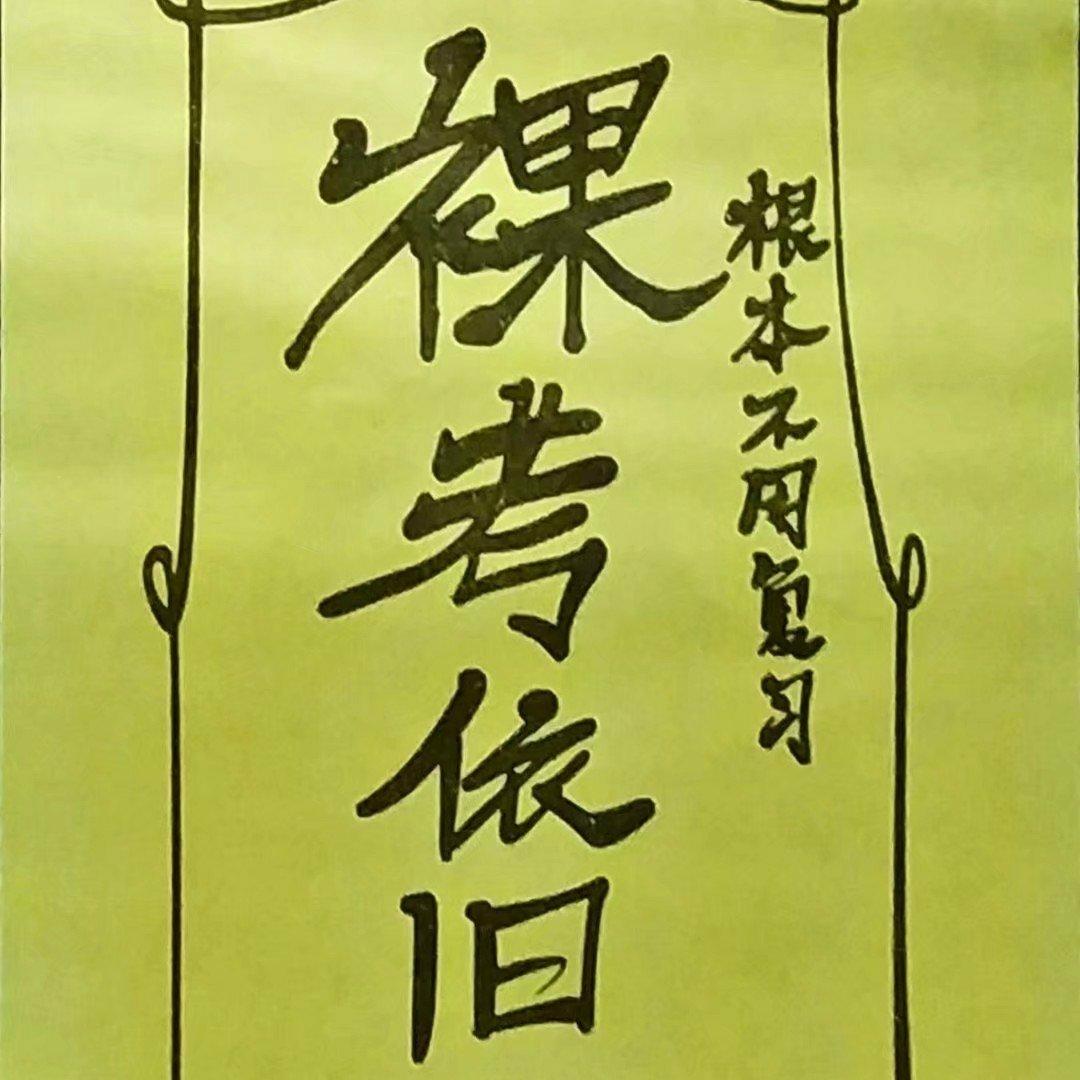 根本不用复习
裸考依旧